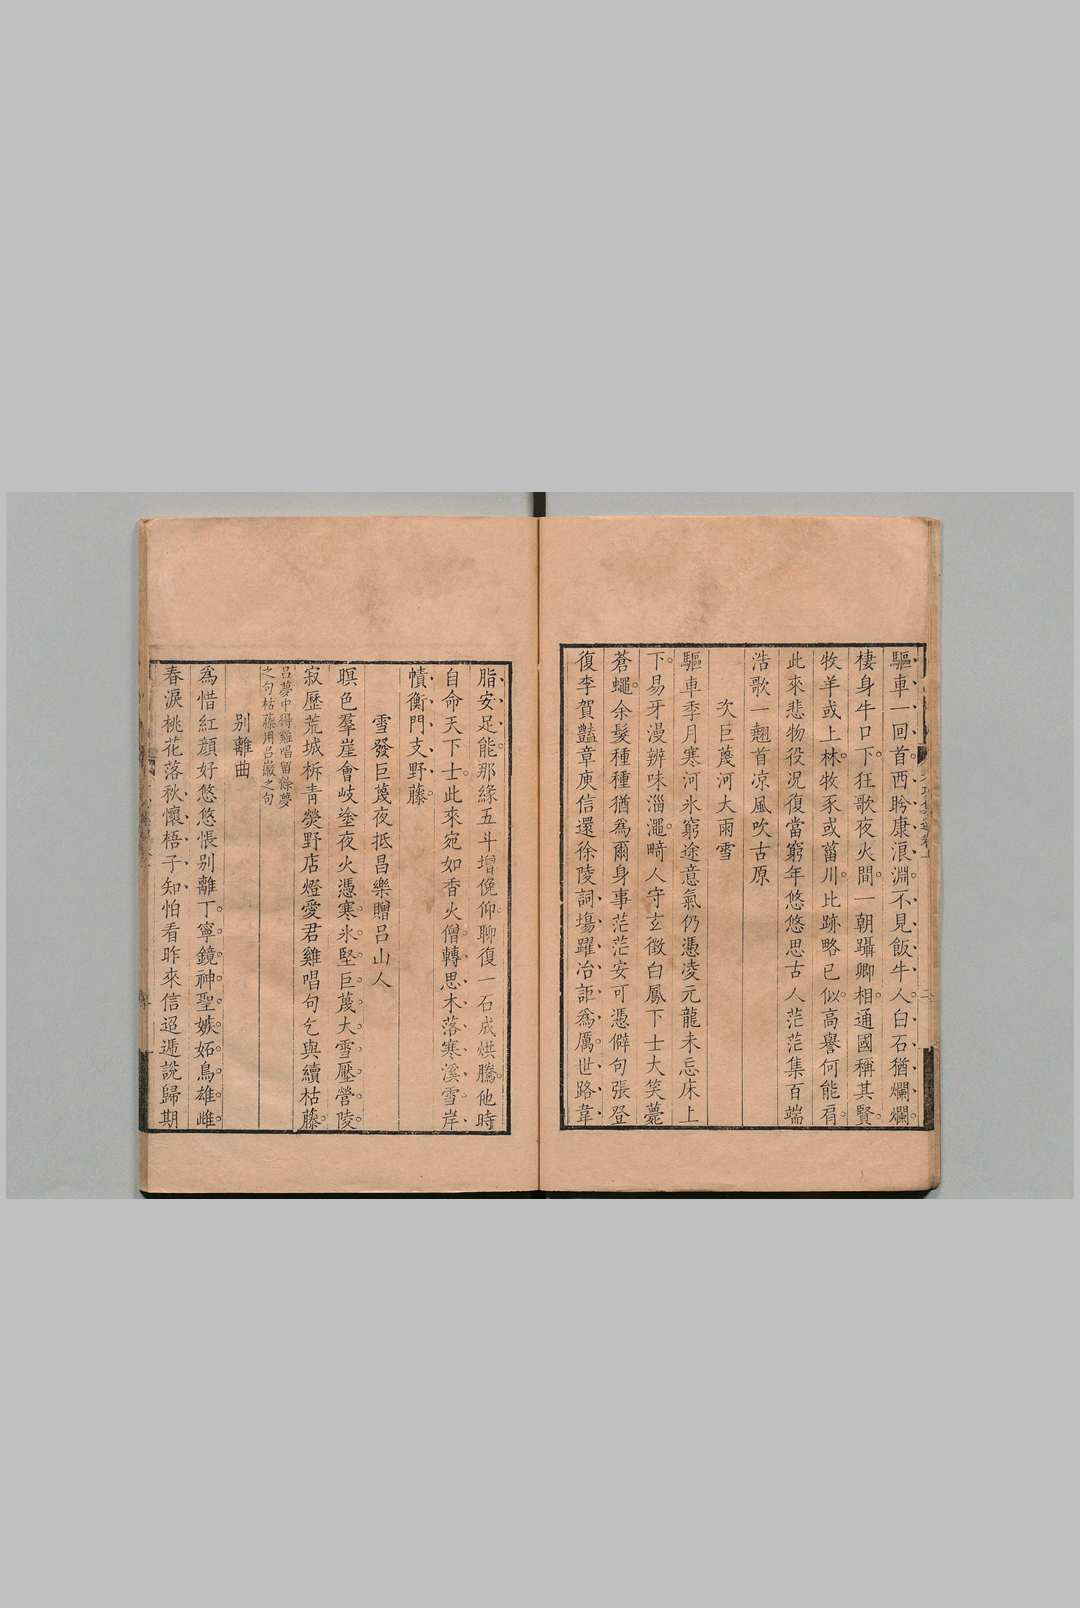 驅車一回首西盻康浪淵不見飯牛人白石猶爛爛
棲身牛口下狂歌夜火間一朝躡卿相通國稱其賢
牧羊或上林牧豕或菑川比跡略已似高譽何能肩
此來悲物役况復當窮年悠悠思古人茫茫集百端
浩歌一翹首凉風吹古原
次巨蔑河大雨雪
驅車季月寒河氷窮途意氣仍憑凌元龍未忘床上
下易牙漫辨味淄澠畸人守玄徵白鳳下士大笑薨
蒼蠅余髮種種猶為爾身事茫茫安可憑僻句張登
復李賀豔章庾信還徐陵詞塲躍冶詎為厲世路韋
脂安足能那緣五斗增俛仰聊復一石成烘騰他時
自命天下士此來宛如香火僧轉思木落寒溪雪岸
幘衡門支野藤
雪發巨蔑夜抵昌樂贈呂山人
暝色羣崖會岐塗夜火憑寒氷堅巨蔑大雪壓營陵
寂歷荒城柝青熒野店燈愛君雞唱句乞與續枯藤
呂夢中得雞唱留餘夢
之句枯藤用呂巖之句
别離曲
為惜紅顔好悠悠悵别離丁寧鏡神聖嫉妬鳥雄雌
春淚桃花落秋懷梧子知怕看昨來信迢遞説歸期